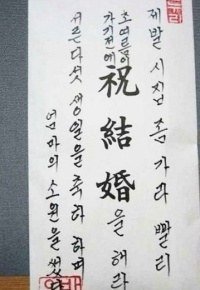 제발 시집 좀 가라 빨리
초여름이
가기전에
祝結婚을 해라
서른다섯 생일을 축하하며
엄마의 소원을 썼다